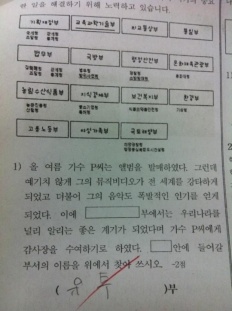 한 일을 해결하기 위해 노력하고 있습니다.
기획재정부 교육과학기술부 외교통상부 통일부
법무부 국방부 행정안전부 문화체육관광부
농림수산식품부 지식경제부 보건복지부 환경부
고용노동부 여성가족부 국토해양부
1) 올 여름 가수 P씨는 앨범을 발매하였다. 그런데
예기치 않게 그의 뮤직비디오가 전 세계를 강타하게
되었고 더불어 그의 음악도 폭발적인 인기를 얻게
되었다. 이에 부에서는 우리나라를
널리 알리는 좋은 계기가 되었다며 가수 P씨에게
감사장을 수여하기로 하였다. 안에 들어갈
부서의 이름을 위에서 찾아 쓰시오. -2점
( 유 튜 )부